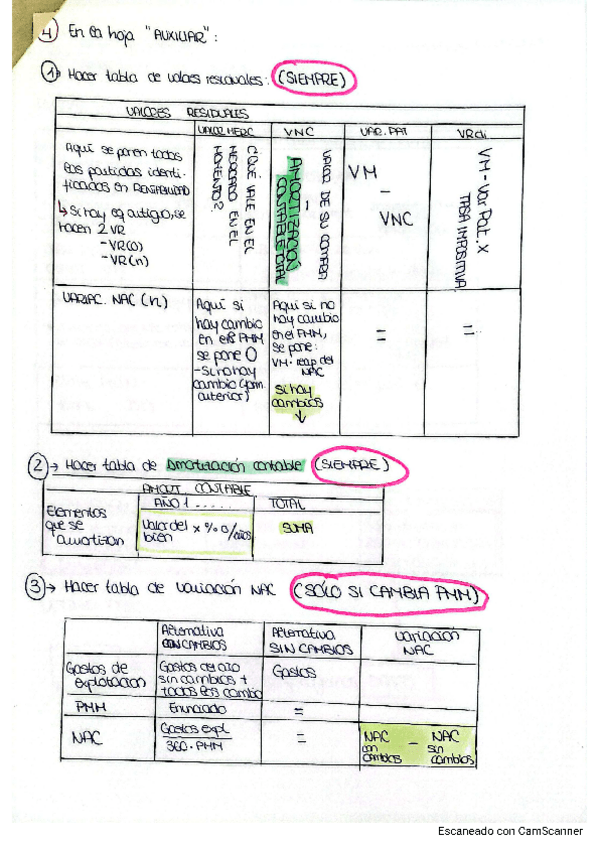 4) En la hoja "AUXILIAR":
1→ Hacer tabla de valores residuales: (SIEMPRE)
VALORES RESIDUALES
VALOR MERC
VNC
VAR. PAT
VRdi
Aquí se ponen todos
las partidas identi-
ficadas en RENTABILIDAD
↳ Si hay eq antiguo, se
hacen 2 VR
- VR(0)
- VR(n)
¿QUÉ VALE EN EL
MERCADO EN EL
MOMENTO?
VALOR DE SU COMPRA
-
AMORTIZACIÓN
CONTABLE TOTAL
VM
-
VNC
VM - Var Pat. x
TASA IMPOSITIVA
VARIAC. NAC (n)
Aquí si
hay cambio
en el PMM
se pone 0
- Si no hay
cambio
anterior)
Aquí si no
hay cambio
en el PMM,
se pone:
VM - reap. del
NAC
Si hay
cambios
↓
=
=
2→ Hacer tabla de Amortización contable (SIEMPRE)
AMORT. CONTABLE
AÑO 1 .....
TOTAL
Elementos
que se
amortizan
Valor del x % o/años
bien
SUMA
3→ Hacer tabla de variación NAC (SÓLO SI CAMBIA PMM)
Alternativa
CON CAMBIOS
Alternativa
SIN CAMBIOS
Variación
NAC
Gastos de
explotación
Gastos del año
sin cambios +
todos los cambio
Gastos
PMM
Enunciado
=
NAC
Gastos expl
360 · PMM
=
NAC con cambios - NAC sin cambios
Escaneado con CamScanner